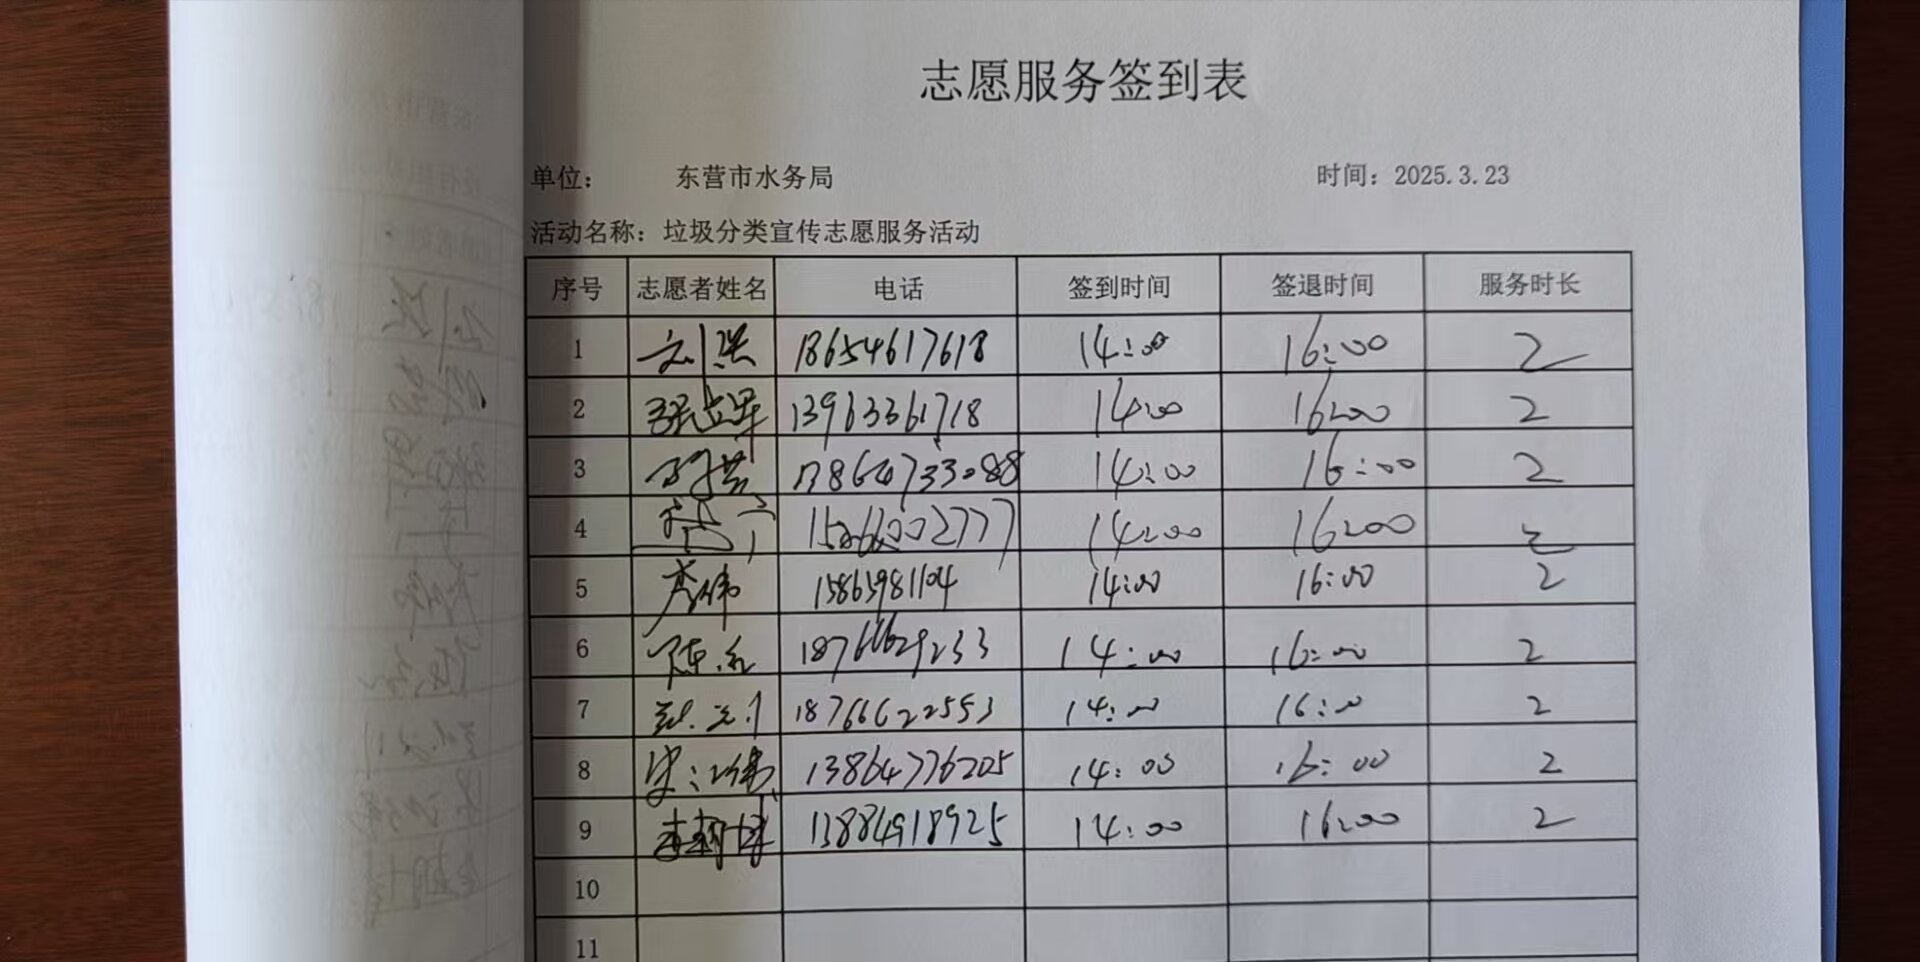 志愿服务签到表
单位： 东营市水务局 时间：2025.3.23
活动名称：垃圾分类宣传志愿服务活动
序号 志愿者姓名 电话 签到时间 签退时间 服务时长
1 刘洪 18654617618 14:00 16:00 2
2 13963361718 14:00 16:00 2
3 14:00 16:00 2
4 14:00 16:00 2
5 李伟 15865981104 14:00 16:00 2
6 陈永 18766629233 14:00 16:00 2
7 18766622553 14:00 16:00 2
8 13864776205 14:00 16:00 2
9 13884918925 14:00 16:00 2
10
11